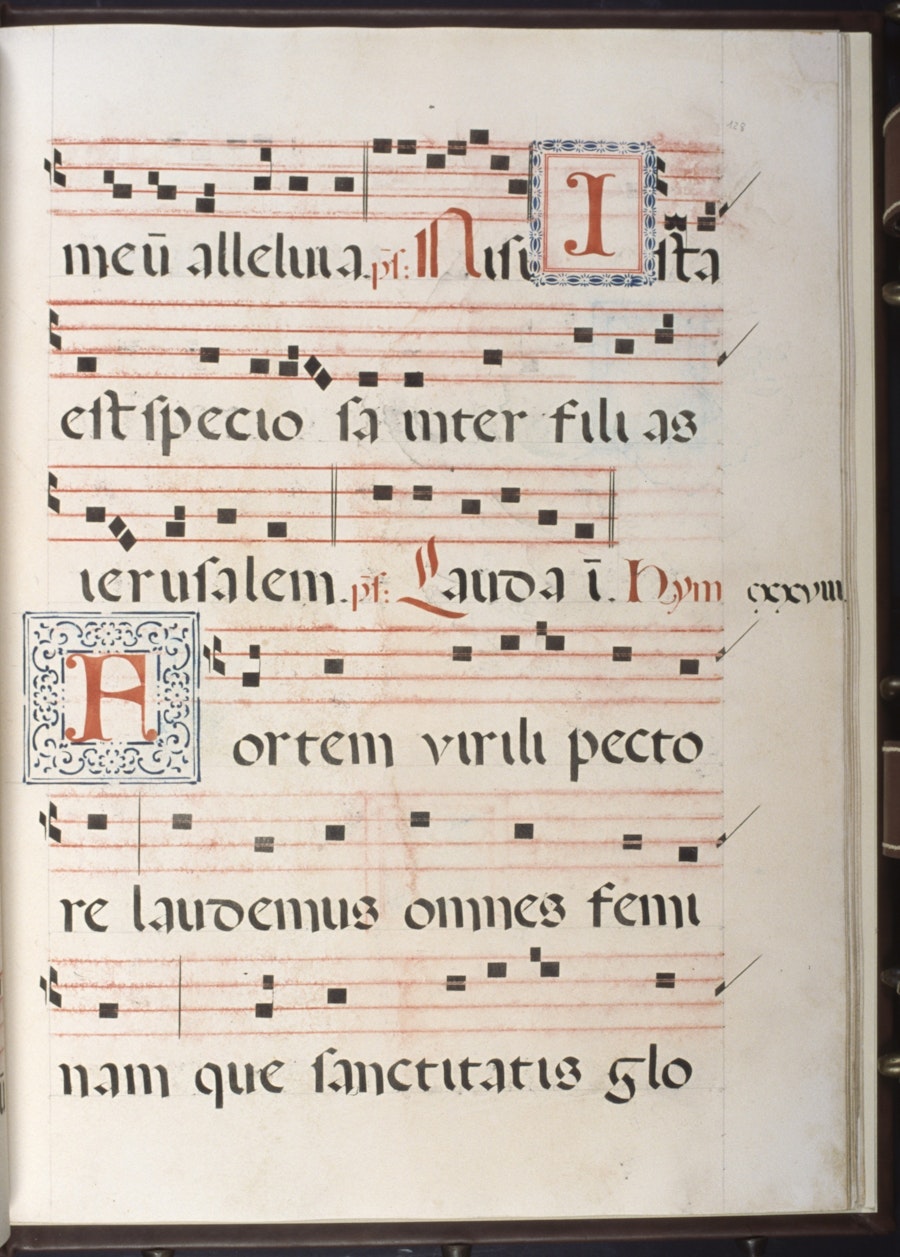 128
meū alleluia. ps̄: Nisi Ista
est specio sa inter fili as
ierusalem. ps̄: Lauda ī. Hym cxxviii
Fortem virili pecto
re laudemus omnes femi
nam que sanctitatis glo